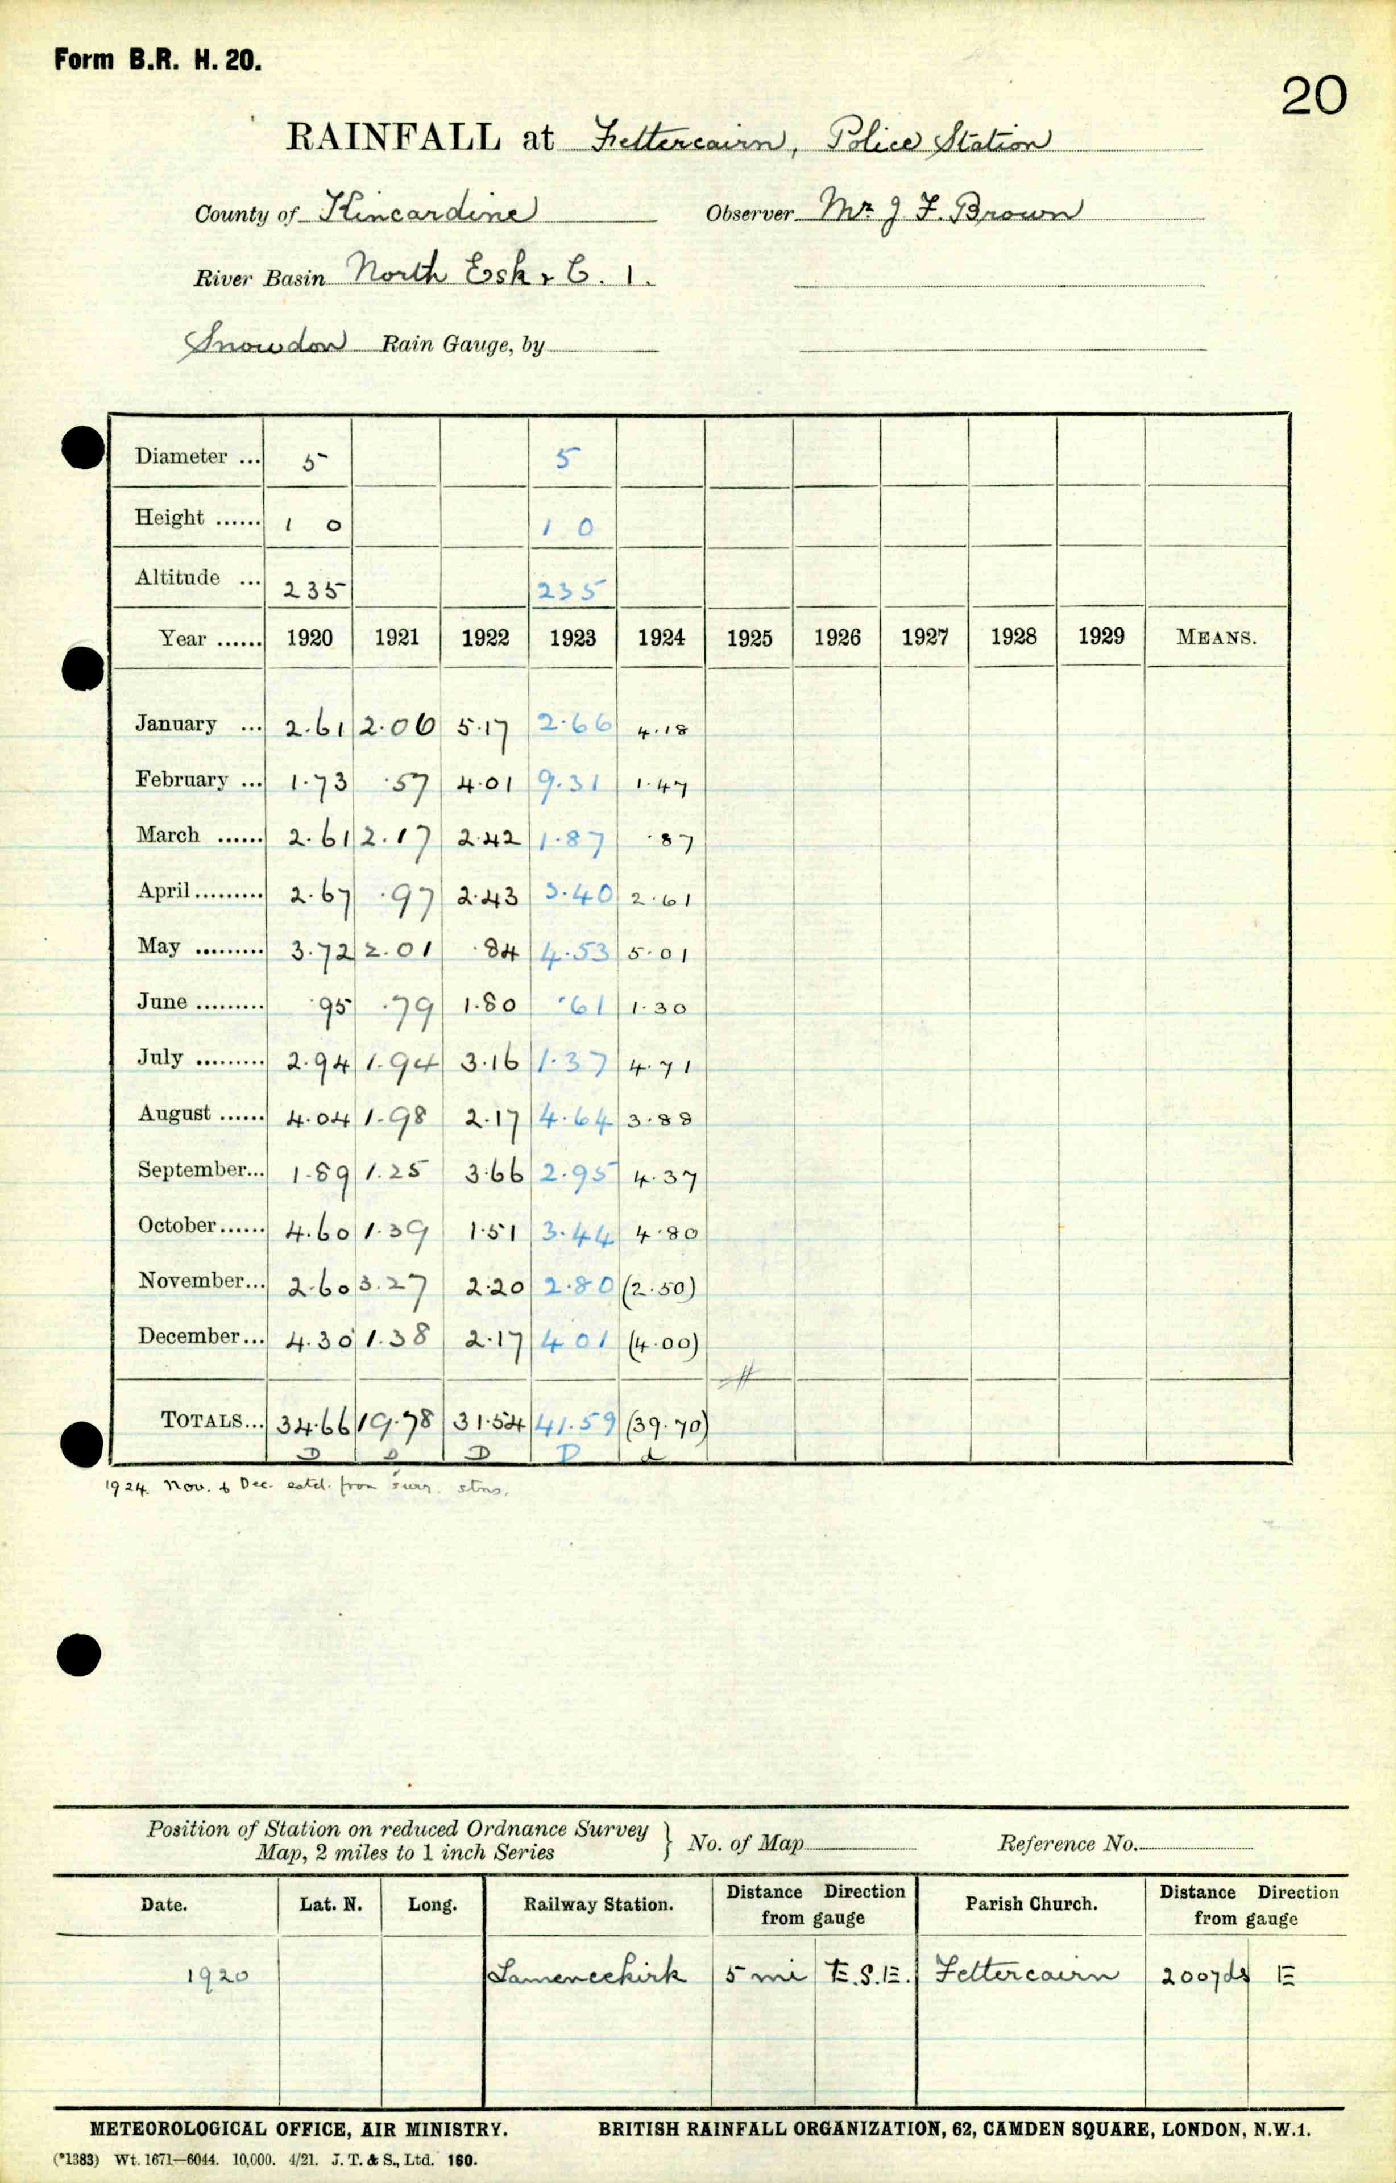 Form B.R. H. 20.
20
RAINFALL at Fettercairn, Police Station
County of Kincardine Observer Mr J. F. Brown
River Basin North Esk & C. 1.
Snowdon Rain Gauge, by
Diameter ... 5 5
Height ...... 1 0 1 0
Altitude ... 235 235
Year ...... 1920 1921 1922 1923 1924 1925 1926 1927 1928 1929 MEANS.
January ... 2.61 2.06 5.17 2.66 4.18
February ... 1.73 .57 4.01 9.31 1.47
March ...... 2.61 2.17 2.42 1.87 .87
April......... 2.67 .97 2.43 3.40 2.61
May ......... 3.72 2.01 .84 4.53 5.01
June ......... .95 .79 1.80 .61 1.30
July ......... 2.94 1.94 3.16 1.37 4.71
August ...... 4.04 1.98 2.17 4.64 3.88
September... 1.89 1.25 3.66 2.95 4.37
October...... 4.60 1.39 1.51 3.44 4.80
November... 2.60 3.27 2.20 2.80 (2.50)
December... 4.30 1.38 2.17 4 01 (4.00)
TOTALS... 34.66 19.78 31.54 41.59 (39.70)
D D D D d
1924. Nov. & Dec. estd. from surr. stns.
Position of Station on reduced Ordnance Survey
Map, 2 miles to 1 inch Series } No. of Map Reference No.
Date. Lat. N. Long. Railway Station. Distance Direction from gauge Parish Church. Distance Direction from gauge
1920 Lawrencekirk 5 mi E.S.E. Fettercairn 200yds E
METEOROLOGICAL OFFICE, AIR MINISTRY. BRITISH RAINFALL ORGANIZATION, 62, CAMDEN SQUARE, LONDON, N.W.1.
(*1383) Wt. 1671—6044. 10,000. 4/21. J. T. & S., Ltd. 160.